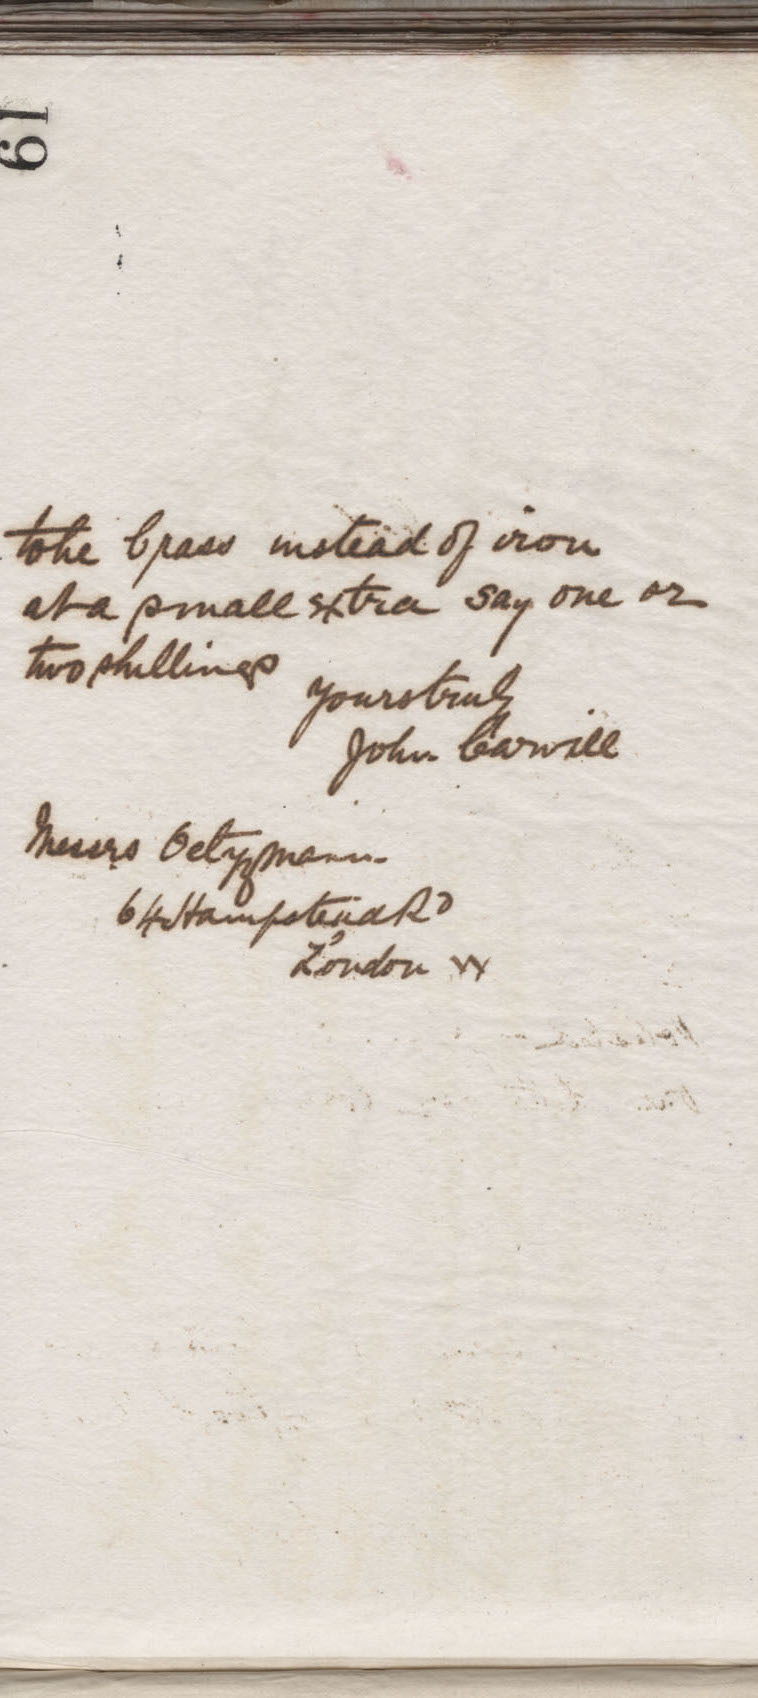 61
to be brass instead of iron
at a small extra say one or
two shillings
Yours truly
John Carvill
Messrs Oetzmann
64 Hampstead Rd
London W